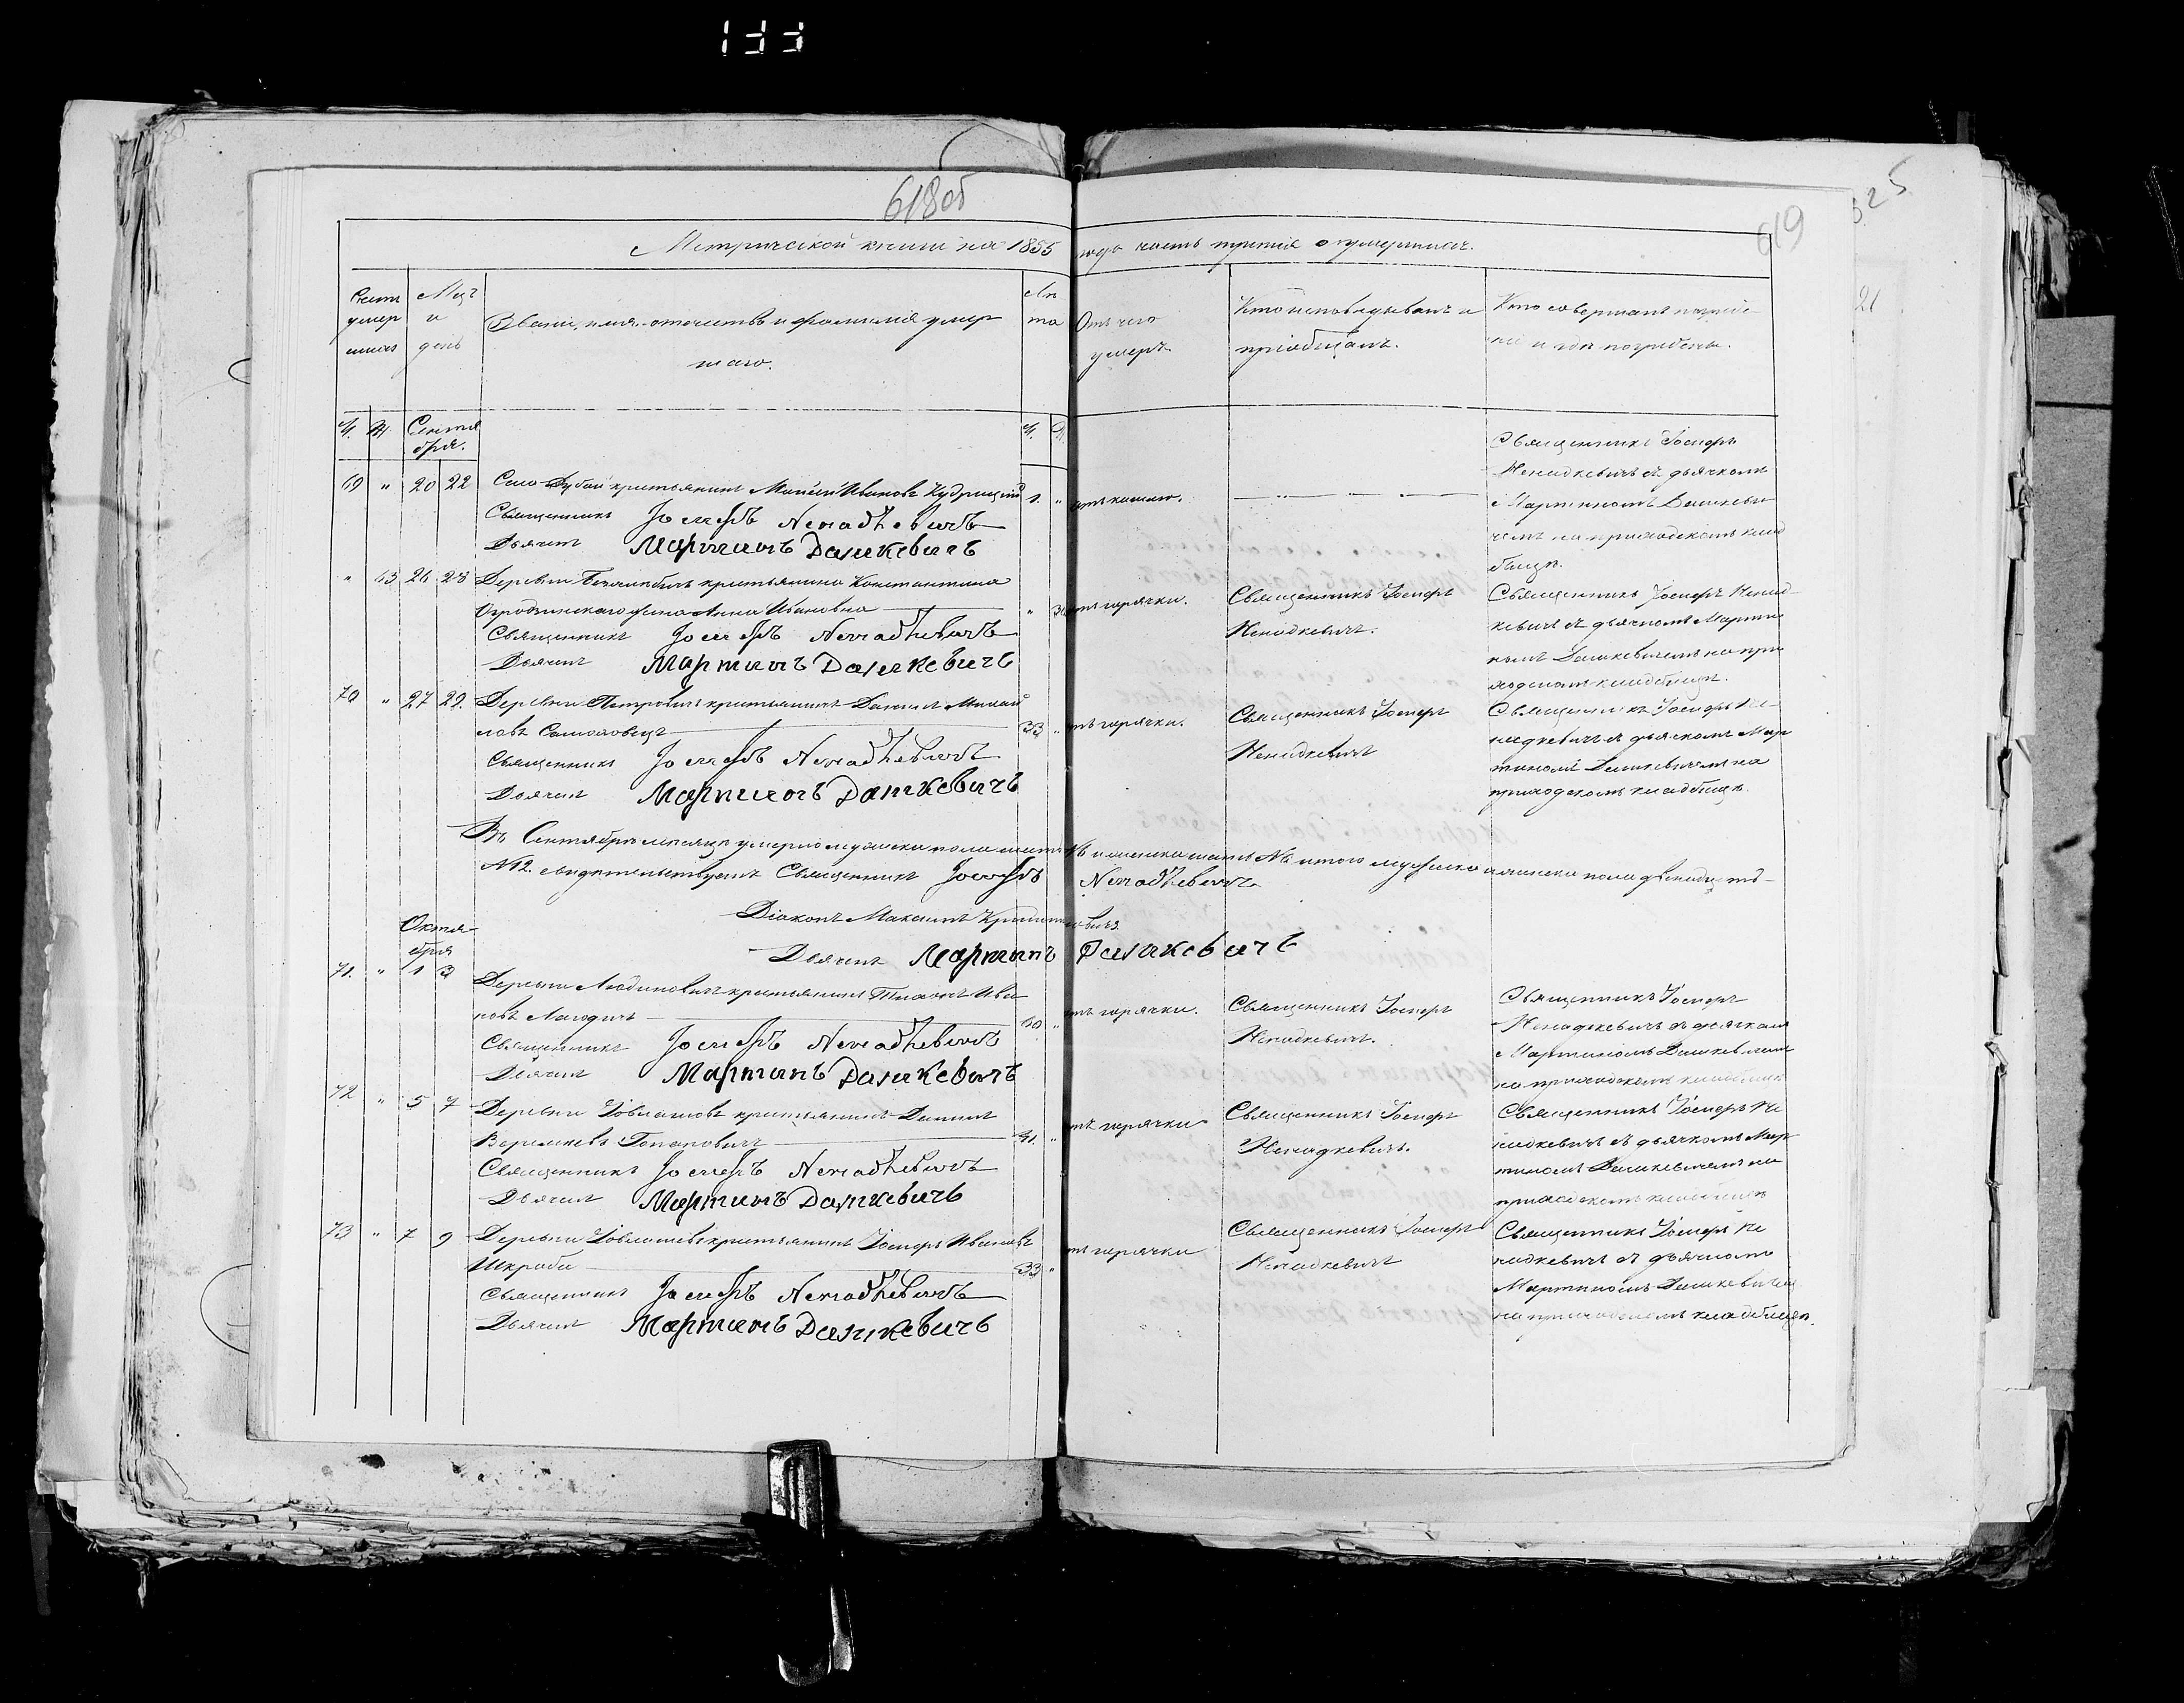 133
618об
619
325
21
Метрической книги на 1855 года часть третія о умершихъ.
Счетъ умер шихъ
Мцъ и день
Званіе, имя, отечество и фамилія умер шаго.
Лѣ та
Отъ чего умеръ.
Кто исповѣдывалъ и пріобщалъ.
Кто совершалъ погребе- ніе и гдѣ погребены.
М. Ж. Сентя бря. М. Ж.
69 " 20 22 Село Дубой крестьянинъ Моисей Ивановъ Кудрицкій 1. " отъ кашлю.
Священникъ Іосифъ Ненадкевичъ
Дьячекъ Мартинъ Дашкевичъ
Священникъ Іосифъ
Ненадкевичъ съ дьячкомъ
Мартиномъ Дашкеви
чемъ на приходскомъ клад
бищѣ.
" 63 26 28 Деревни крестьянина Константина
жена Анна Ивановна " отъ горячки.
Священникъ Іосифъ Ненадкевичъ
Дьячекъ Мартинъ Дашкевичъ
Священникъ Іосифъ
Ненадкевичъ.
Священникъ Іосифъ Ненад-
кевичъ съ дьячкомъ Марти
номъ Дашкевичемъ на при
ходскомъ кладбищѣ.
70 " 27 29. Деревни Петровичъ крестьянинъ Даніилъ Михай
ловъ 33 " отъ горячки.
Священникъ Іосифъ Ненадкевичъ
Дьячекъ Мартинъ Дашкевичъ
Священникъ Іосифъ
Ненадкевичъ
Священникъ Іосифъ Не-
надкевичъ съ дьячкомъ Мар
тиномъ Дашкевичемъ на
приходскомъ кладбищѣ.
Въ Сентябрѣ мѣсяцѣ умерло мужеска пола шесть №6 и женска шесть №6 итого мужеска и женска пола двѣнадцать
№12. свидѣтельствуемъ Священникъ Іосифъ Ненадкевичъ
Діаконъ Максимъ
Дьячекъ Мартинъ Дашкевичъ
Октя-
бря
71. " 1 3 Деревни крестьянинъ Тихонъ Ива
новъ 60 " отъ горячки.
Священникъ Іосифъ Ненадкевичъ
Дьячекъ Мартинъ Дашкевичъ
Священникъ Іосифъ
Ненадкевичъ.
Священникъ Іосифъ
Ненадкевичъ съ дьячкомъ
Мартиномъ Дашкевичемъ
на приходскомъ кладбищѣ
72 " 5 7 Деревни крестьянинъ Даніилъ
41. " отъ горячки
Священникъ Іосифъ Ненадкевичъ
Дьячекъ Мартинъ Дашкевичъ
Священникъ Іосифъ
Ненадкевичъ.
Священникъ Іосифъ Не
надкевичъ съ дьячкомъ Мар
тиномъ Дашкевичемъ на
приходскомъ кладбищѣ
73 " 7 9 Деревни крестьянинъ Іосифъ Ивановъ
Шкроба 33 " отъ горячки
Священникъ Іосифъ Ненадкевичъ
Дьячекъ Мартинъ Дашкевичъ
Священникъ Іосифъ
Ненадкевичъ
Священникъ Іосифъ Не
надкевичъ съ дьячкомъ
Мартиномъ Дашкевичемъ
на приходскомъ кладбищѣ.